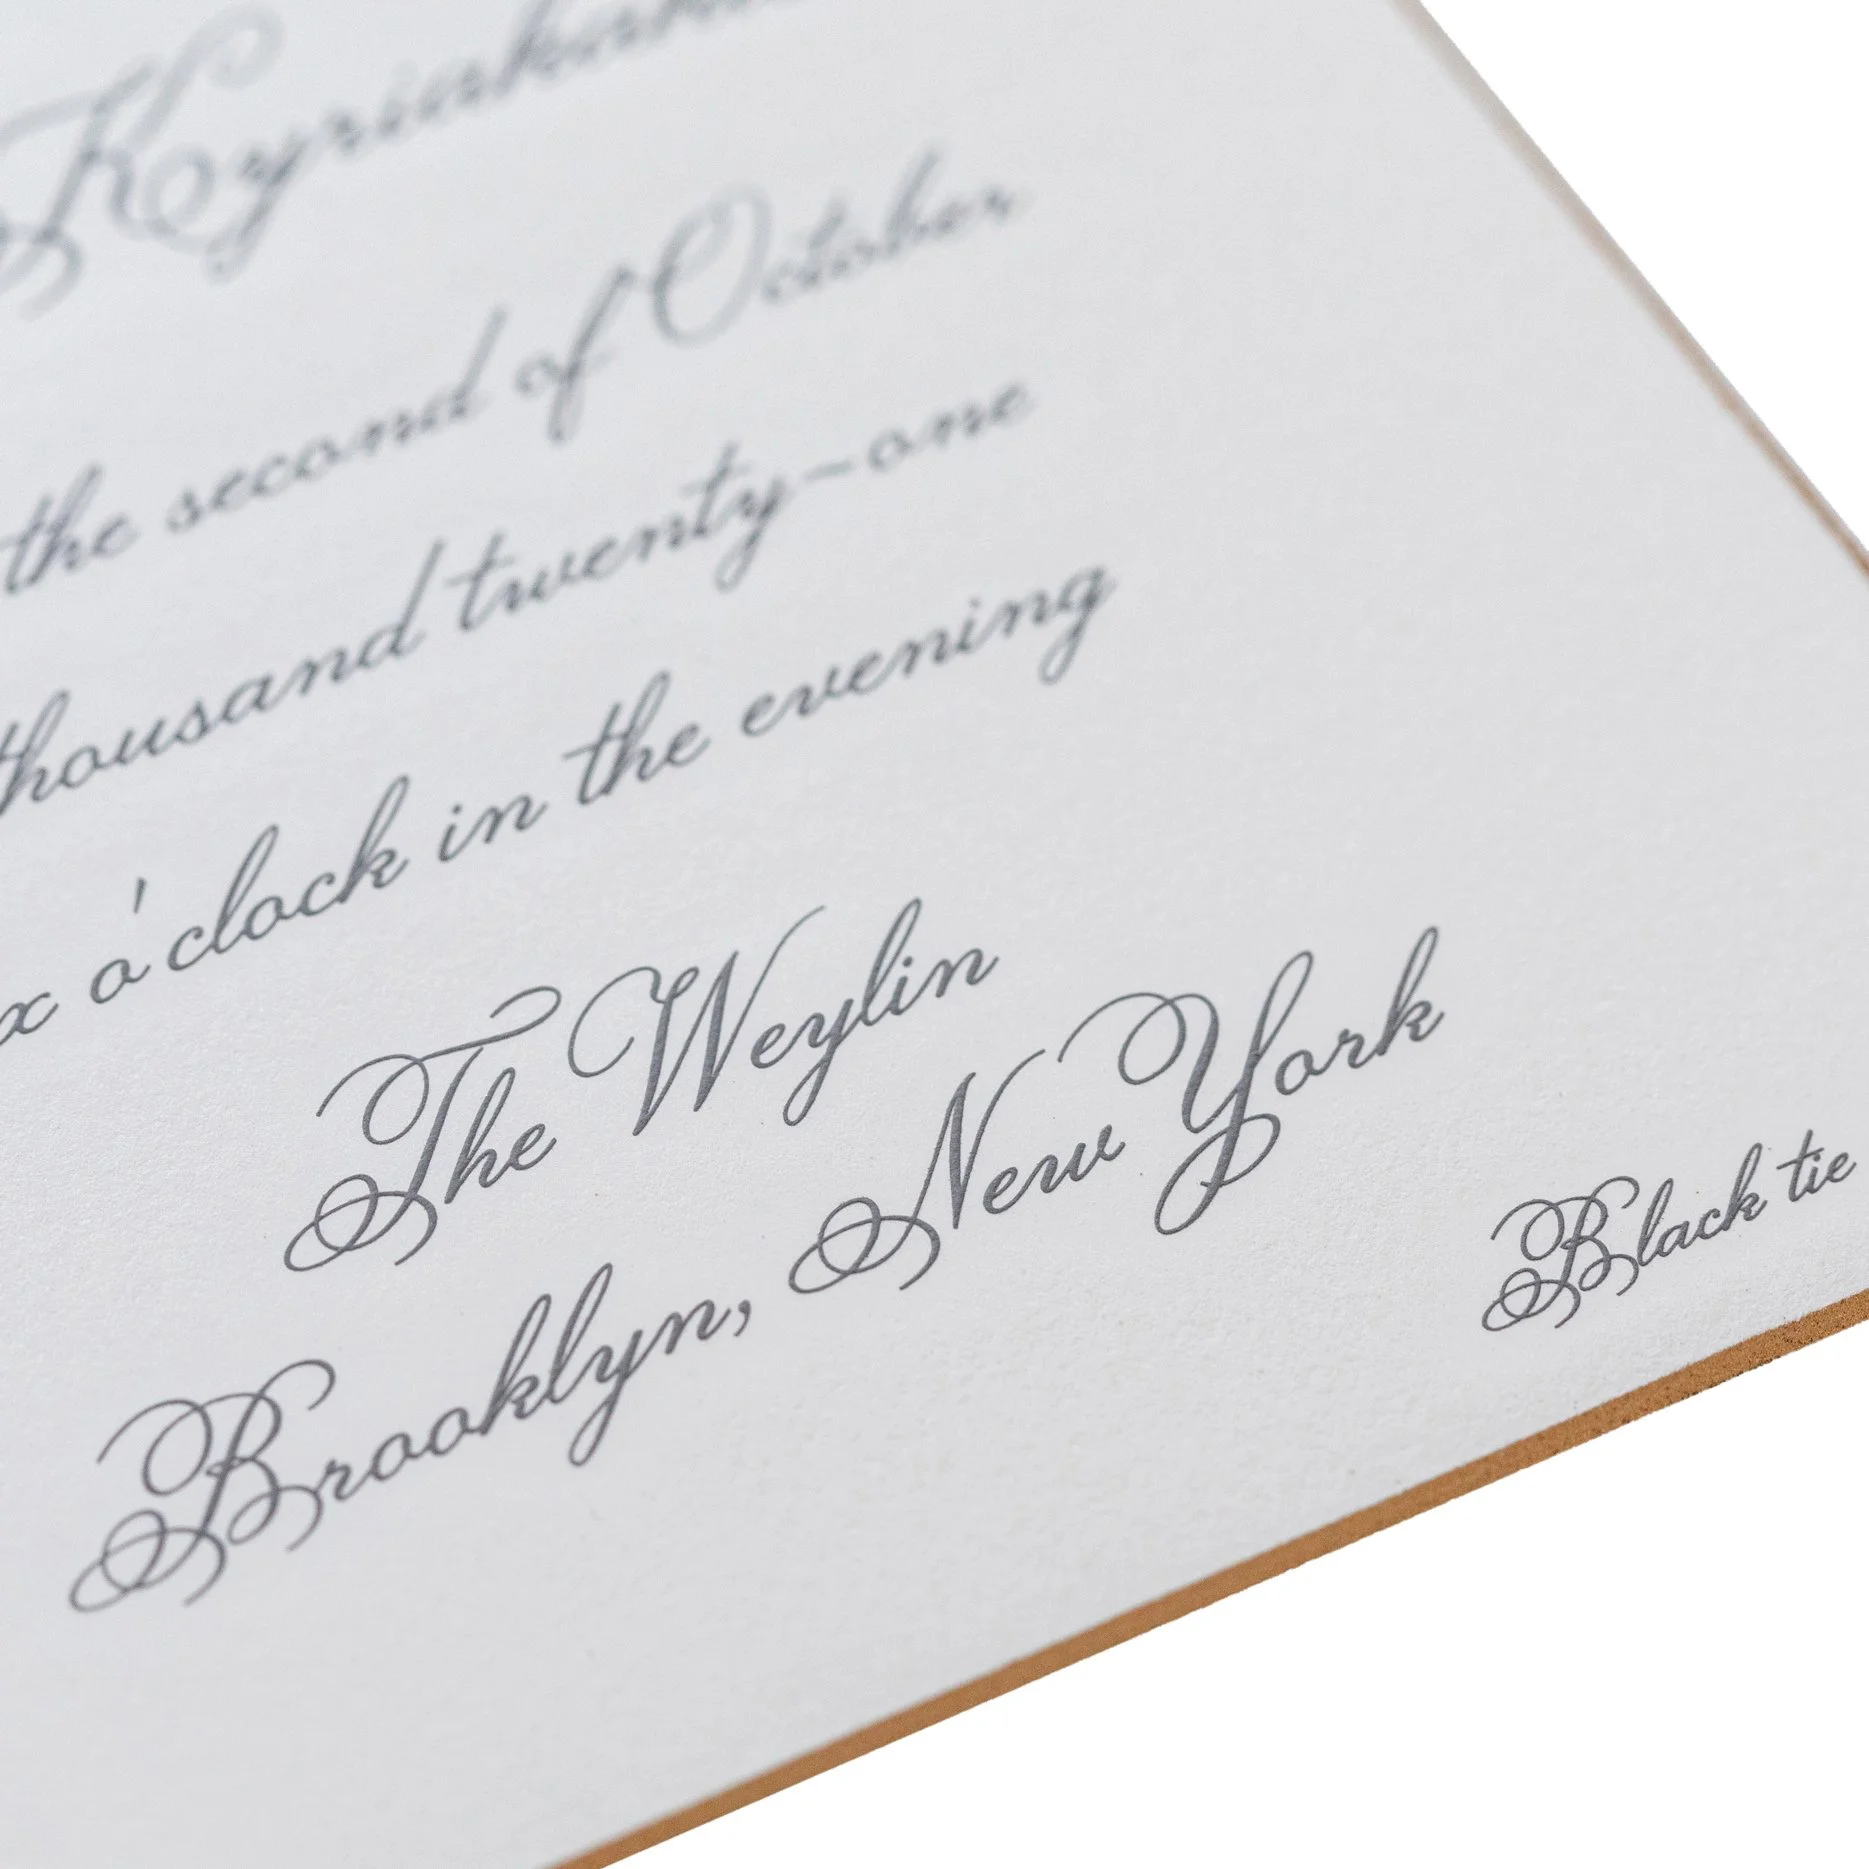 the second of October
thousand twenty-one
o'clock in the evening
The Weylin
Brooklyn, New York
Black tie